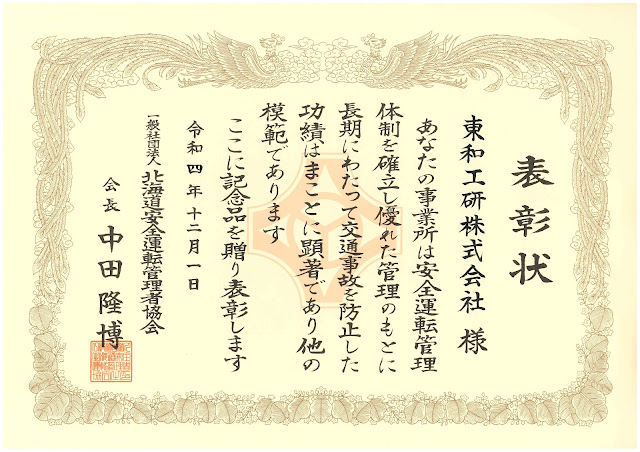 表彰状
東和工研株式会社 様
あなたの事業所は安全運転管理
体制を確立し優れた管理のもとに
長期にわたって交通事故を防止した
功績はまことに顕著であり他の
模範であります
ここに記念品を贈り表彰します
令和四年十二月一日
一般社団法人 北海道安全運転管理者協会
会長 中田隆博